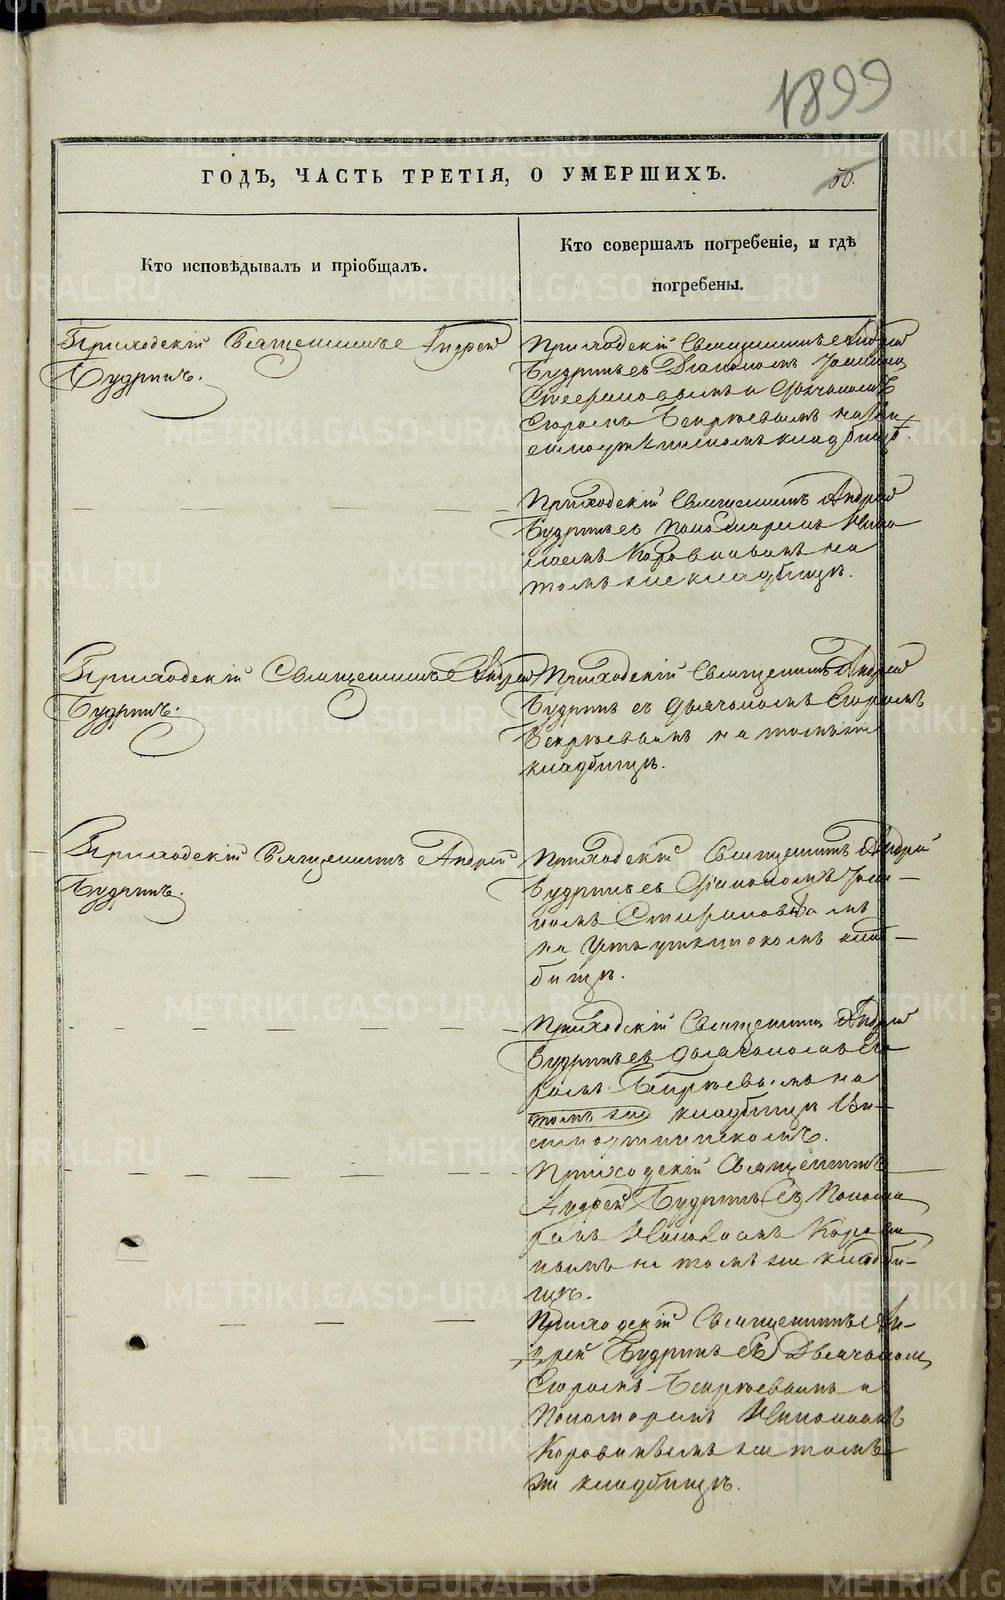 1899
ГОДЪ, ЧАСТЬ ТРЕТІЯ, О УМЕРШИХЪ.
50.
Кто исповѣдывалъ и пріобщалъ.
Кто совершалъ погребеніе, и гдѣ
погребены.
Приходскій Священникъ Андрей
Будринъ.
Приходскій Священникъ Андрей
Будринъ съ Діакономъ
Стефановымъ и Дьячкомъ
Егоромъ на
кладбищѣ.
Приходскій Священникъ Андрей
Будринъ съ Пономаремъ Нико
лаемъ Коровинымъ на
томъ же кладбищѣ.
Приходскій Священникъ Андрей
Будринъ.
Приходскій Священникъ Андрей
Будринъ съ Дьячкомъ Егоромъ
на томъ же
кладбищѣ.
Приходскій Священникъ Андрей
Будринъ.
Приходскій Священникъ Андрей
Будринъ съ Діакономъ
Стефановымъ
на Усть уткинскомъ клад-
бищѣ.
Приходскій Священникъ Андрей
Будринъ съ Дьячкомъ Его
ромъ на
томъ же кладбищѣ
Приходскій Священникъ
Андрей Будринъ съ Понома
ремъ Николаемъ Корови
нымъ на томъ же кладби-
щѣ.
Приходскій Священникъ Ан-
дрей Будринъ съ Дьячкомъ
Егоромъ и
Пономаремъ Николаемъ
Коровинымъ на томъ
же кладбищѣ.
METRIKI.GASO-URAL.RU